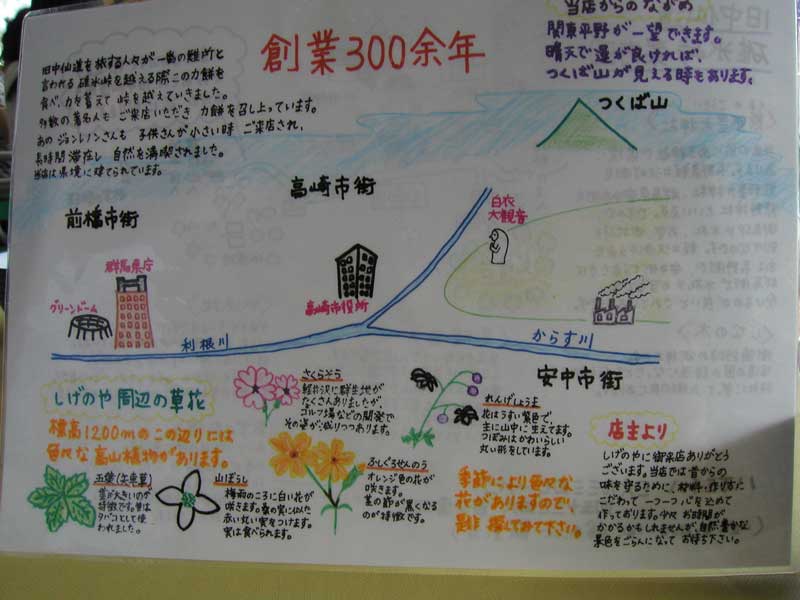 創業300余年
旧中仙道を旅する人々が一番の難所と
言われる 碓氷峠を越える際この力餅を
食べ、力を蓄えて 峠を越えていきました。
多数の著名人も ご来店いただき 力餅を召し上っています。
あの ジョンレノンさんも 子供さんが小さい時 ご来店され、
長時間 滞在し 自然を満喫されました。
当店は県境に建てられています。
当店からのながめ
関東平野が一望できます。
晴天で運が良ければ、
つくば山が見える時もあります。
つくば山
高崎市街
前橋市街
白衣
大観音
群馬県庁
グリーンドーム
高崎市役所
利根川
からす川
安中市街
しげのや 周辺の草花
標高1200mのこの辺りには
色々な高山植物があります。
さくらそう
軽井沢に群生地が
たくさんありましたが、
ゴルフ場などの開発で
その姿が減りつつあります。
れんげしょうま
花はうすい紫色で
主に山中に生えてます。
つぼみはかわいらしい
丸い形をしています。
葉が大きいのが
特徴です。昔は
タバコとして使
われました。
山ぼうし
梅雨のころに白い花が
咲きます。桑の実に似た
赤い丸い実をつけます。
実は食べられます。
ふしぐろせんのう
オレンジ色の花が
咲きます。
茎の節が黒くなる
のが特徴です。
季節により色々な
花がありますので、
是非 探してみて下さい。
店主より
しげのやに御来店ありがとう
ございます。当店では昔からの
味を守るために、材料・作り方に
こだわって 一つ一つ心を込めて
作っております。少々 お時間が
かかるかもしれませんが、自然豊かな
景色をごらんになって お待ち下さい。